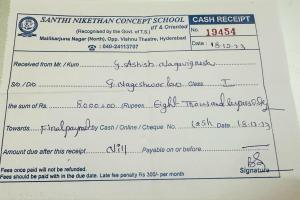 SANTHI NIKETHAN CONCEPT SCHOOL
CASH RECEIPT
(IIT & Oriented)
(Recognised by the Govt. of T.S.)
No. 19454
Mallikarjuna Nagar (North), Opp. Vishnu Theatre, Hyderabad
☎ : 040-24113707
Date : 18-12-23
Received from Mr. / Kum G. Ashish Nagavignesh
S/o / D/o G. Nageshwar Rao Class I
the sum of Rs. 8000=00 (Rupees Eight Thousand rupees
Towards Final payment Cash / Online / Cheque No. Cash Date 18.12.23
Amount due after this receipt Nill Payable on or before
Fees once paid will not be refunded.
Fees should be paid with in the due date. Late fee penalty Rs 300/- per month
Signature